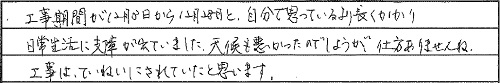 ・工事期間が12月8日から12月28日と、自分で思っているより長くかかり
日常生活に支障が出ていました。天候も悪かったのでしょうが仕方ありませんね。
工事は、ていねいにされていたと思います。